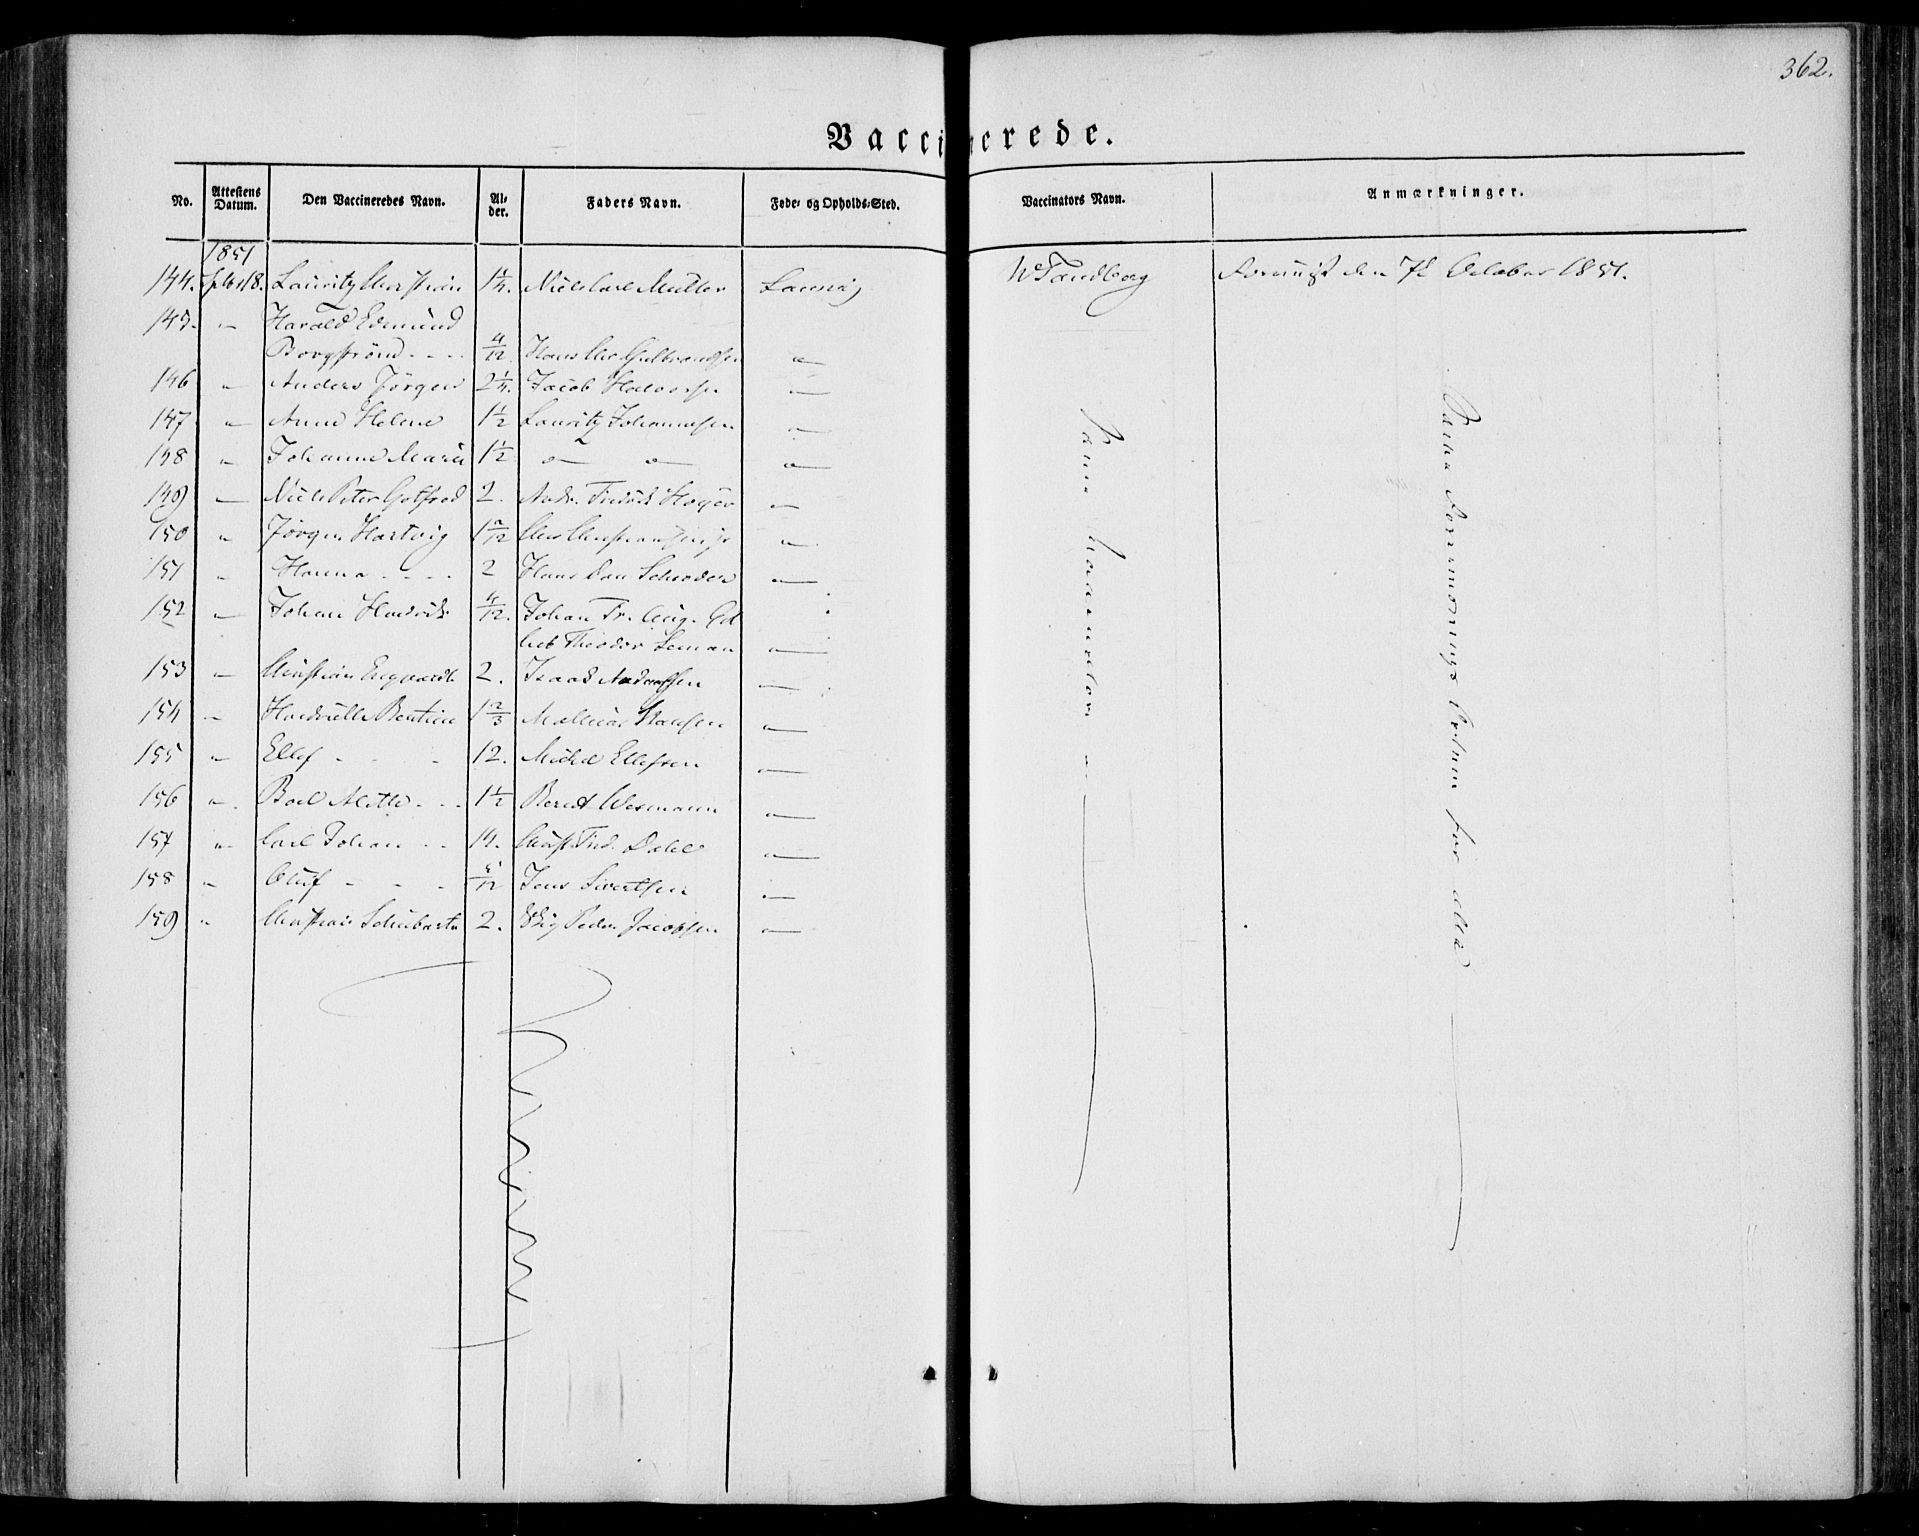 362.
Vaccinerede.
No. Attestens Datum. Den Vaccineredes Navn. Alder. Faders Navn. Føde- og Opholds-Sted. Vaccinators Navn. Anmærkninger.
1851
144. Septbr 18. Lauritz Christian 1 1/4. Niels Carl Müller Laurvig W Tandberg den 7de October 1851.
145. " Harald Edmund
Borgstrønd - - - 4/12. Hans Chr Gulbrandsen "
146 " Anders Jørgen 2 1/4. Jacob Halvorsen "
147 " Anne Helene 1 1/2 Lauritz Johannesen "
148 " Johanne Marie 1 1/2 " " "
149 " Niels Peter Gotfred 2. Andr. Fredrik Høyer "
150 " Jørgen Hartvig 1 2/12 Chr Christiansen jr "
151 " Hanna - - - - 2 Hans Dan Schrøder "
152 " Johan Hendrik 4/12. Johan Fr. Aug. Got
lieb Theodor Seman "
153 " Christian Engvardt 2. Isaak Andersen "
154 " Hendrette Bentine 1 2/3 Mathias Hansen "
155 " Ellef - - - 12. Michel Ellefsen "
156 " Boel Mette - - 1 1/2 Berent Wesmann "
157 " Carl Johan - - 14. Christ. Fred. Dahl "
158 " Oluf - - - 5/12 Jens Sivertsen "
159 " Christian Schubarth 2. Peder Jacobsen "
for alle